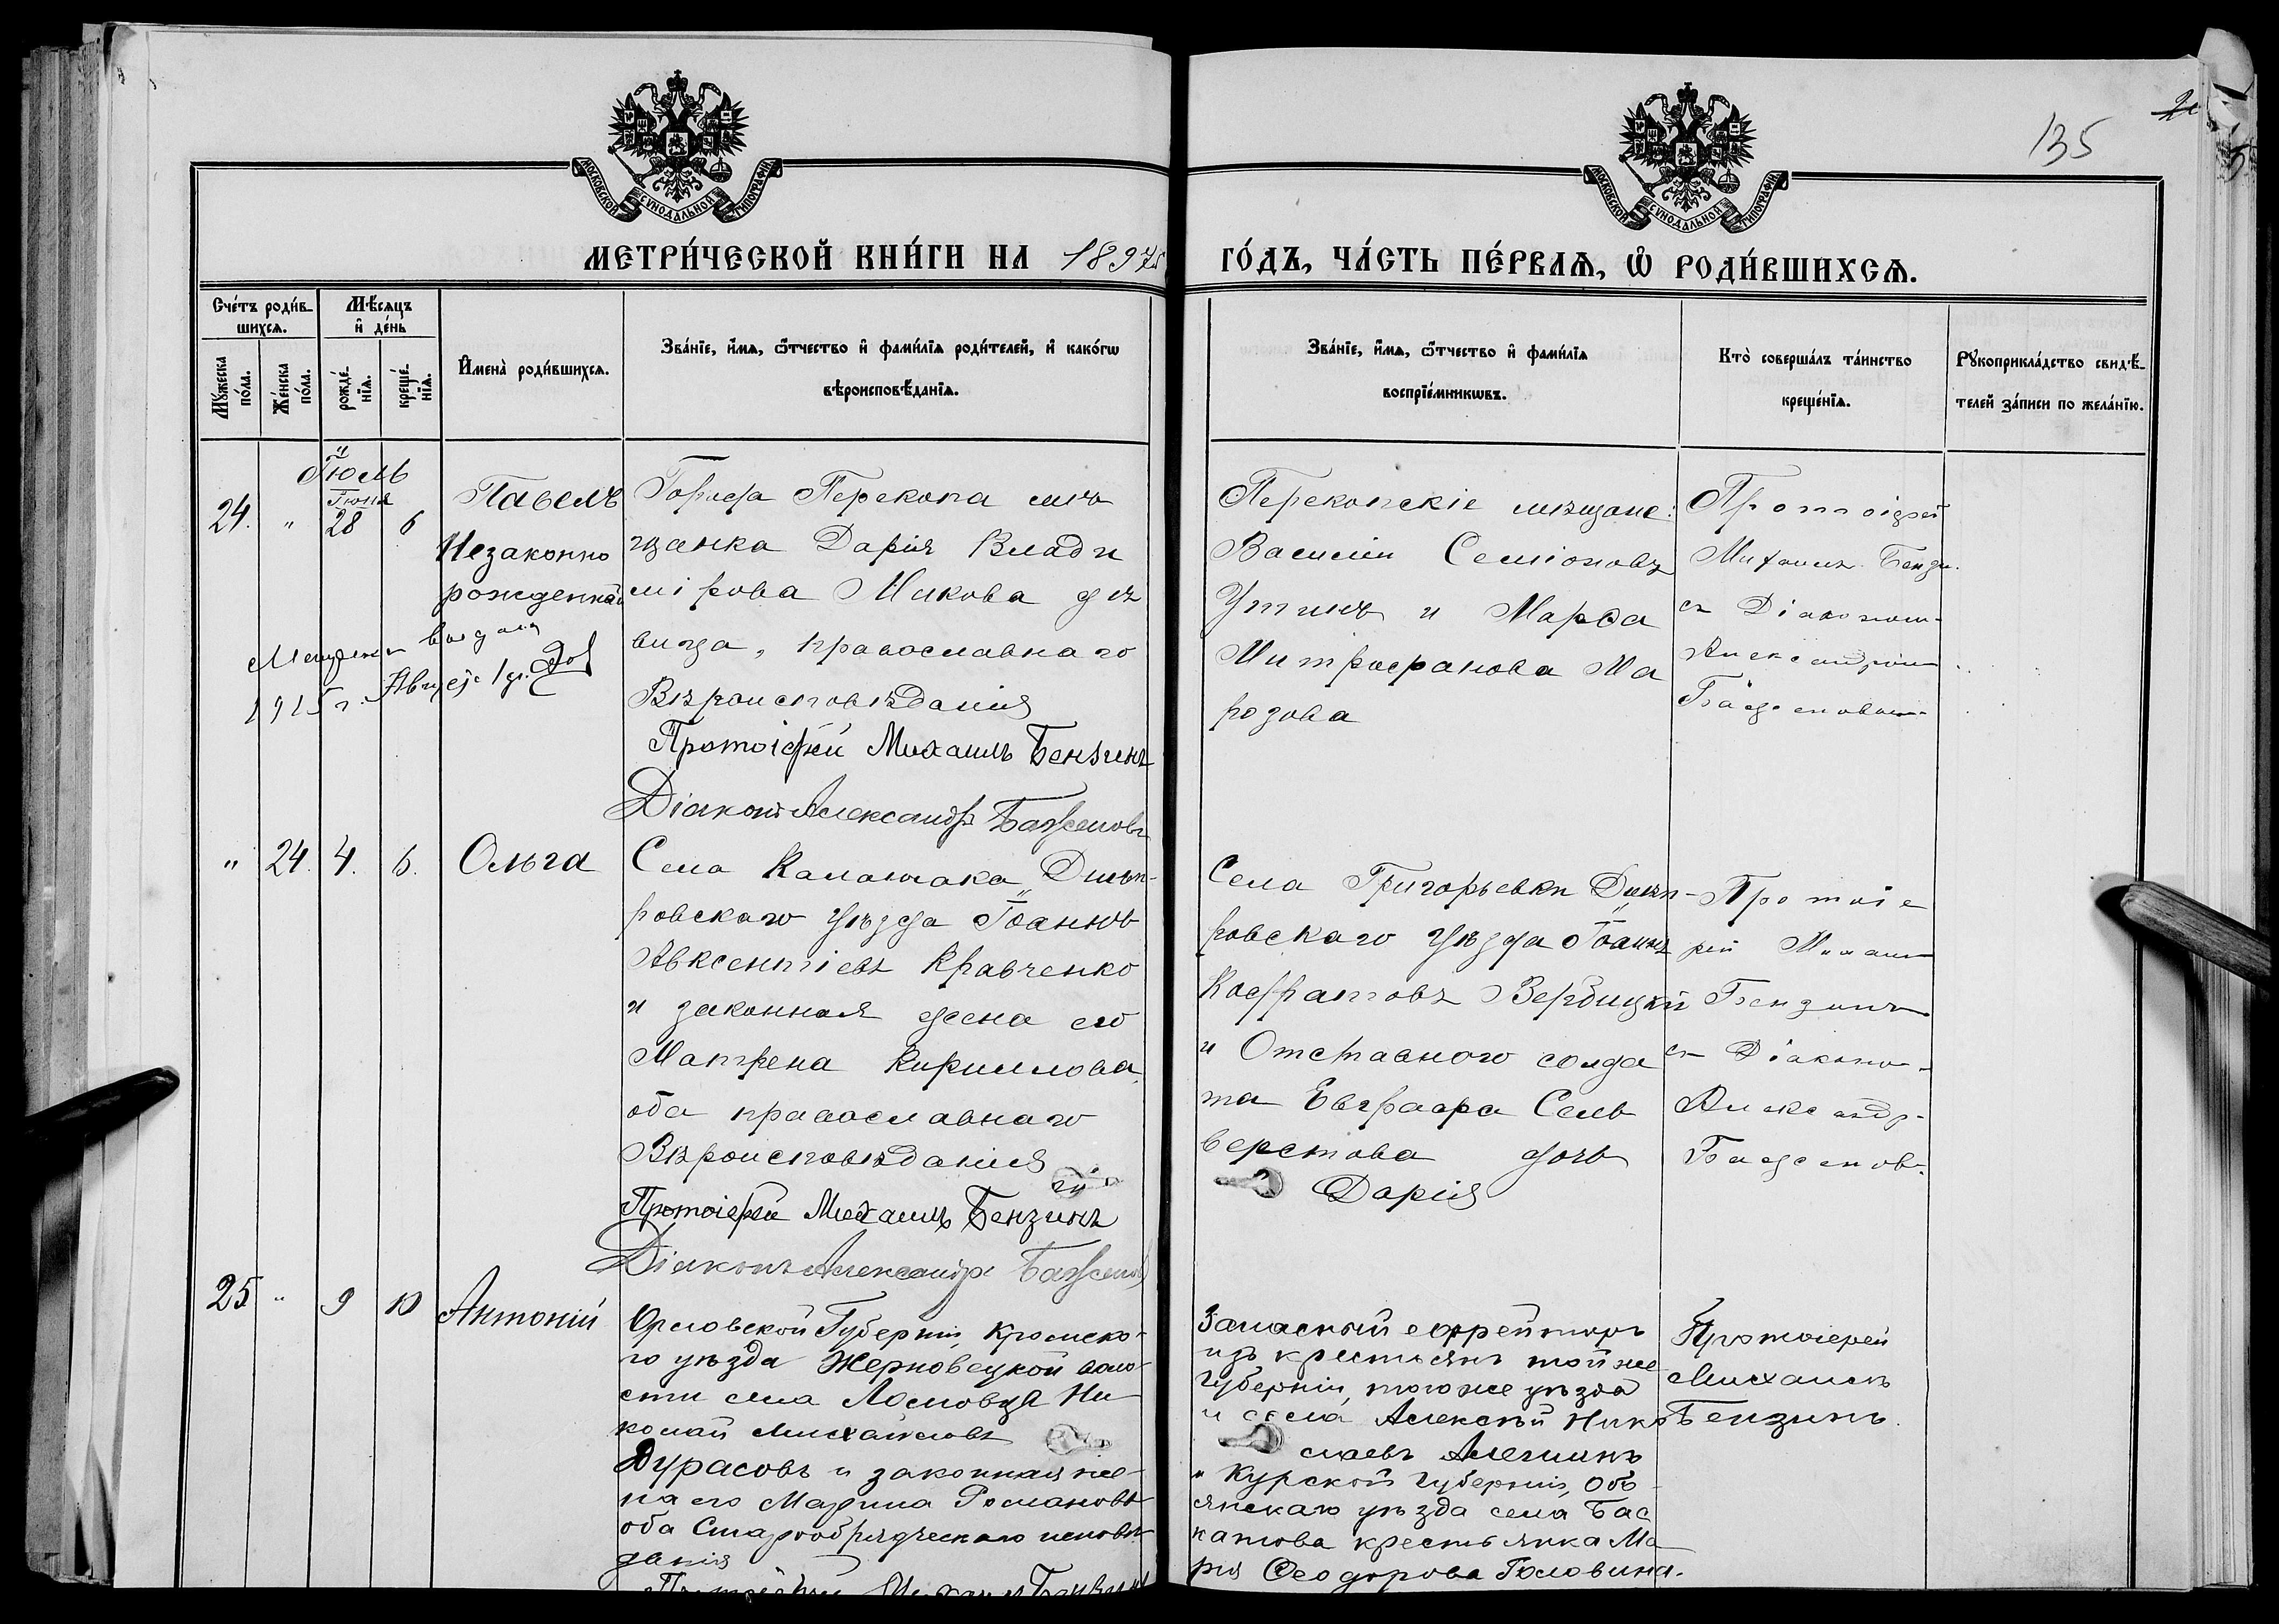 135
МОСКОВСКОЙ СѴНОДАЛЬНОЙ ТИПОГРАФІИ
МОСКОВСКОЙ СѴНОДАЛЬНОЙ ТИПОГРАФІИ
МЕТРИ́ЧЕСКОЙ КНИ́ГИ НА 1897й
ГО́ДЪ, ЧА́СТЬ ПЕ́РВАѦ, Ѡ҆ РОДИ́ВШИХСѦ.
Сче́тъ роди́в-
шихсѧ.
Мѣ́сѧцъ
и҆ де́нь
Мꙋ́жеска
по́ла.
Же́нска
по́ла.
рожде́-
нїѧ.
креще́-
нїѧ.
И҆мена̀ роди́вшихсѧ.
Зва́нїе, и҆́мѧ, ѻ҆́тчество и҆ фами́лїѧ роди́телей, и҆ како́гѡ
вѣроисповѣ́данїѧ.
Зва́нїе, и҆́мѧ, ѻ҆́тчество и҆ фами́лїѧ
воспрїе́мникѡвъ.
Кто̀ соверша́лъ та́инство
креще́нїѧ.
Рꙋкоприкла́дство свидѣ́-
телей за́писи по жела́нїю.
Іюль
Іюня
24. " 28 6
Павелъ
Незаконно
рожденный
выдана
1915 г.
Города Перекопа мѣ
щанка Дарія Влади
мірова Микова дѣ
вица, православнаго
Вѣроисповѣданія
Протоіерей Михаилъ Бензинъ
Діаконъ Александръ Баженовъ
Перекопскіе мѣщане:
Василій Семіоновъ
Утинъ и Марѳа
Митрофанова Ма
розова
Протоіерей
Михаилъ Бензи.
съ Діаконом
Александром
Баженовым
" 24. 4. 6. Ольга
Села Каланчака, Днѣп-
ровскаго уѣзда Іоаннъ
Авксентіевъ Кравченко
и законная жена его
Матрена Кириллова,
оба православнаго
Вѣроисповѣданія
Протоіерей Михаилъ Бензинъ
Діаконъ Александръ Баженовъ
Села Григорьевки Днѣп-
ровскаго уѣзда Іоаннъ
Кодратовъ Вербицкій
и Отставного солда
та Евграфа Сель
верстова дочь
Дарія
Протоіе
рей Михаил
Бензинъ
съ Діаконо-
Александр-
Баженов-
25 " 9 10 Антоній
Орловской Губерніи, Кромска-
го уѣзда Жерновецкой воло-
сти села Ломовца Ни-
колай Михайловъ
Дурасовъ и законная же-
на его Марина Романова
оба Старообрядческаго исповѣ-
данія
Протоіерей Михаилъ Бензинъ
Запасный ефрейторъ
изъ крестьянъ той же
губерніи, того же уѣзда
и села Алексѣй Нико
лаевъ Алешинъ
и Курской губерніи, Обо
янскаго уѣзда села Бас
катова крестьянка Ма
рія Ѳеодорова Головина.
Протоіерей
Михаилъ
Бензинъ.